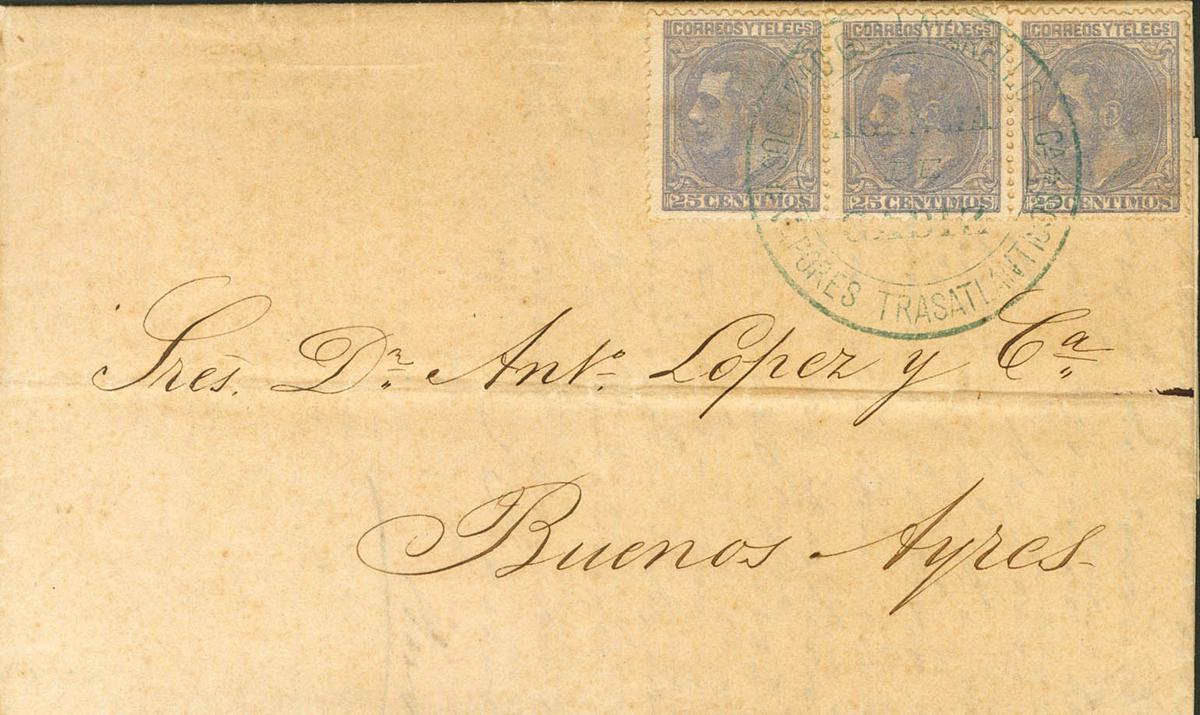 CORREOS Y TELEGS CORREOS Y TELEGS CORREOS Y TELEGS
25 CENTIMOS 25 CENTIMOS 25 CENTIMOS
AGENCIA
DE
CADIZ
VAPORES TRASATLÁNTICOS
Sres. Dn. Anto. Lopez y Ca
Buenos Ayres.